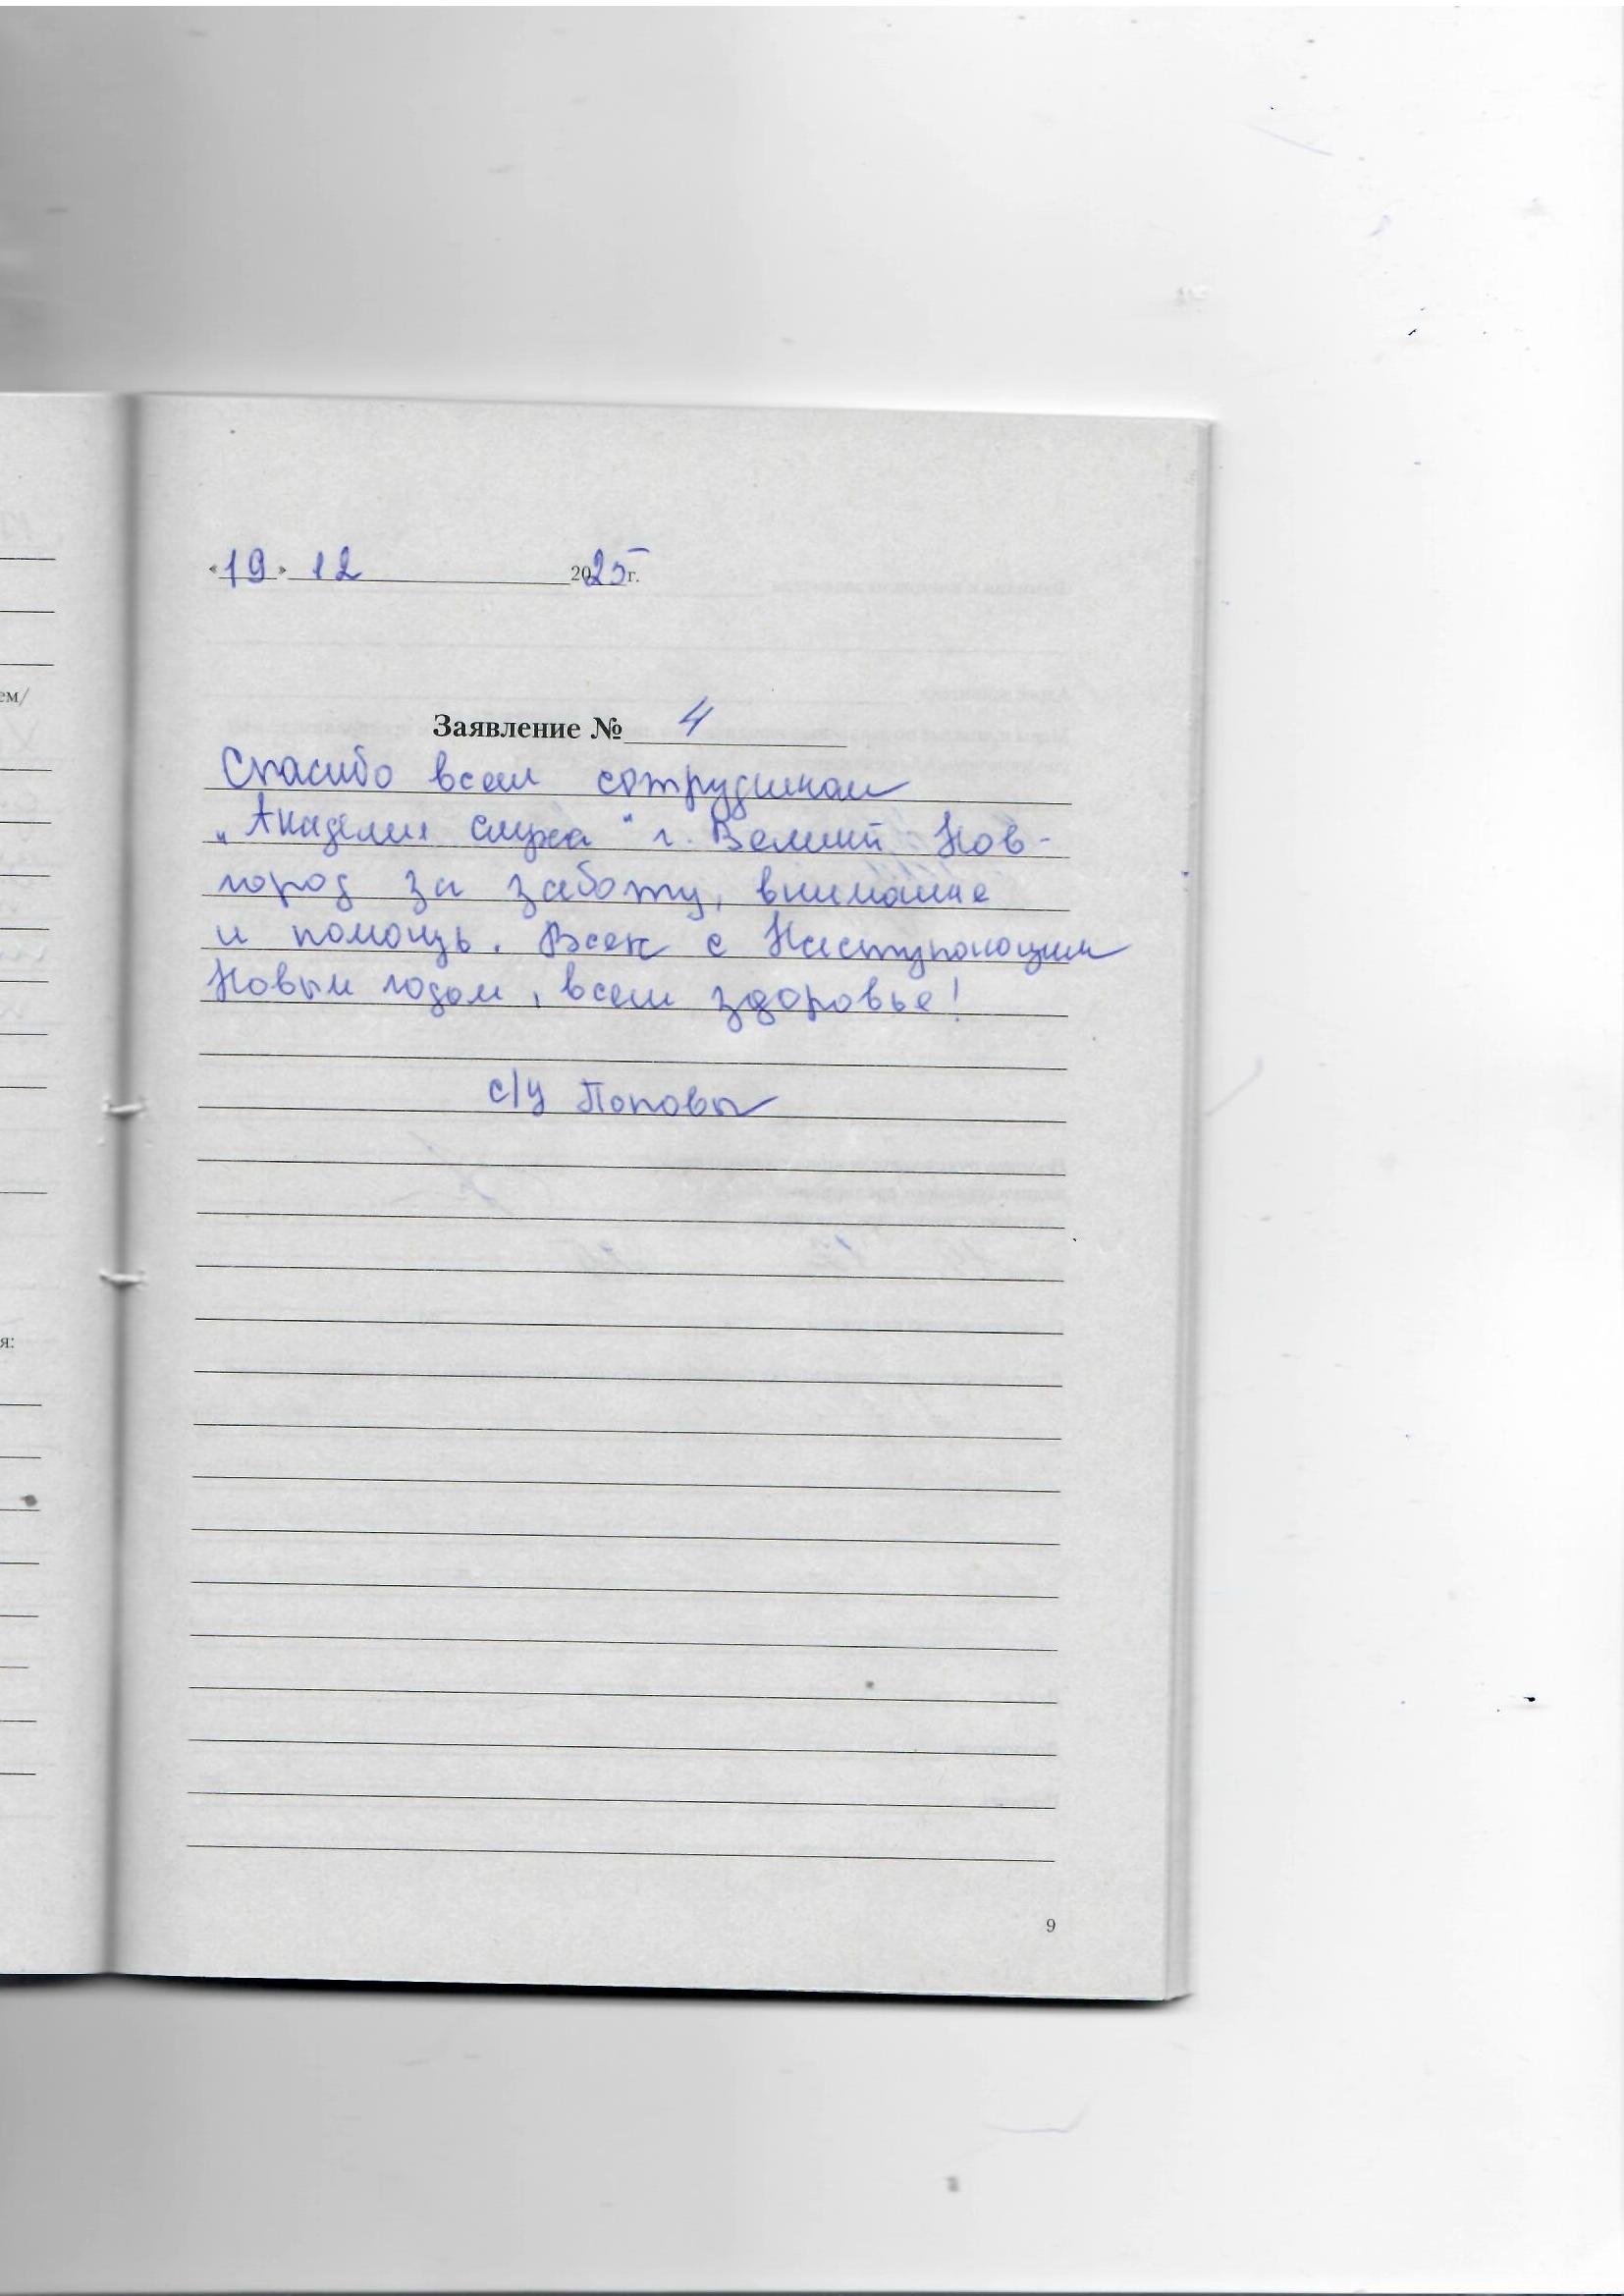 «19» 12 2025 г.
ем/
Заявление № 4
Спасибо всем сотрудникам
„Академия слуха“ г. Великий Нов-
город за заботу, внимание
и помощь. Всех с Наступающим
Новым годом, всем здоровье!
с/у Поповы
я:
9